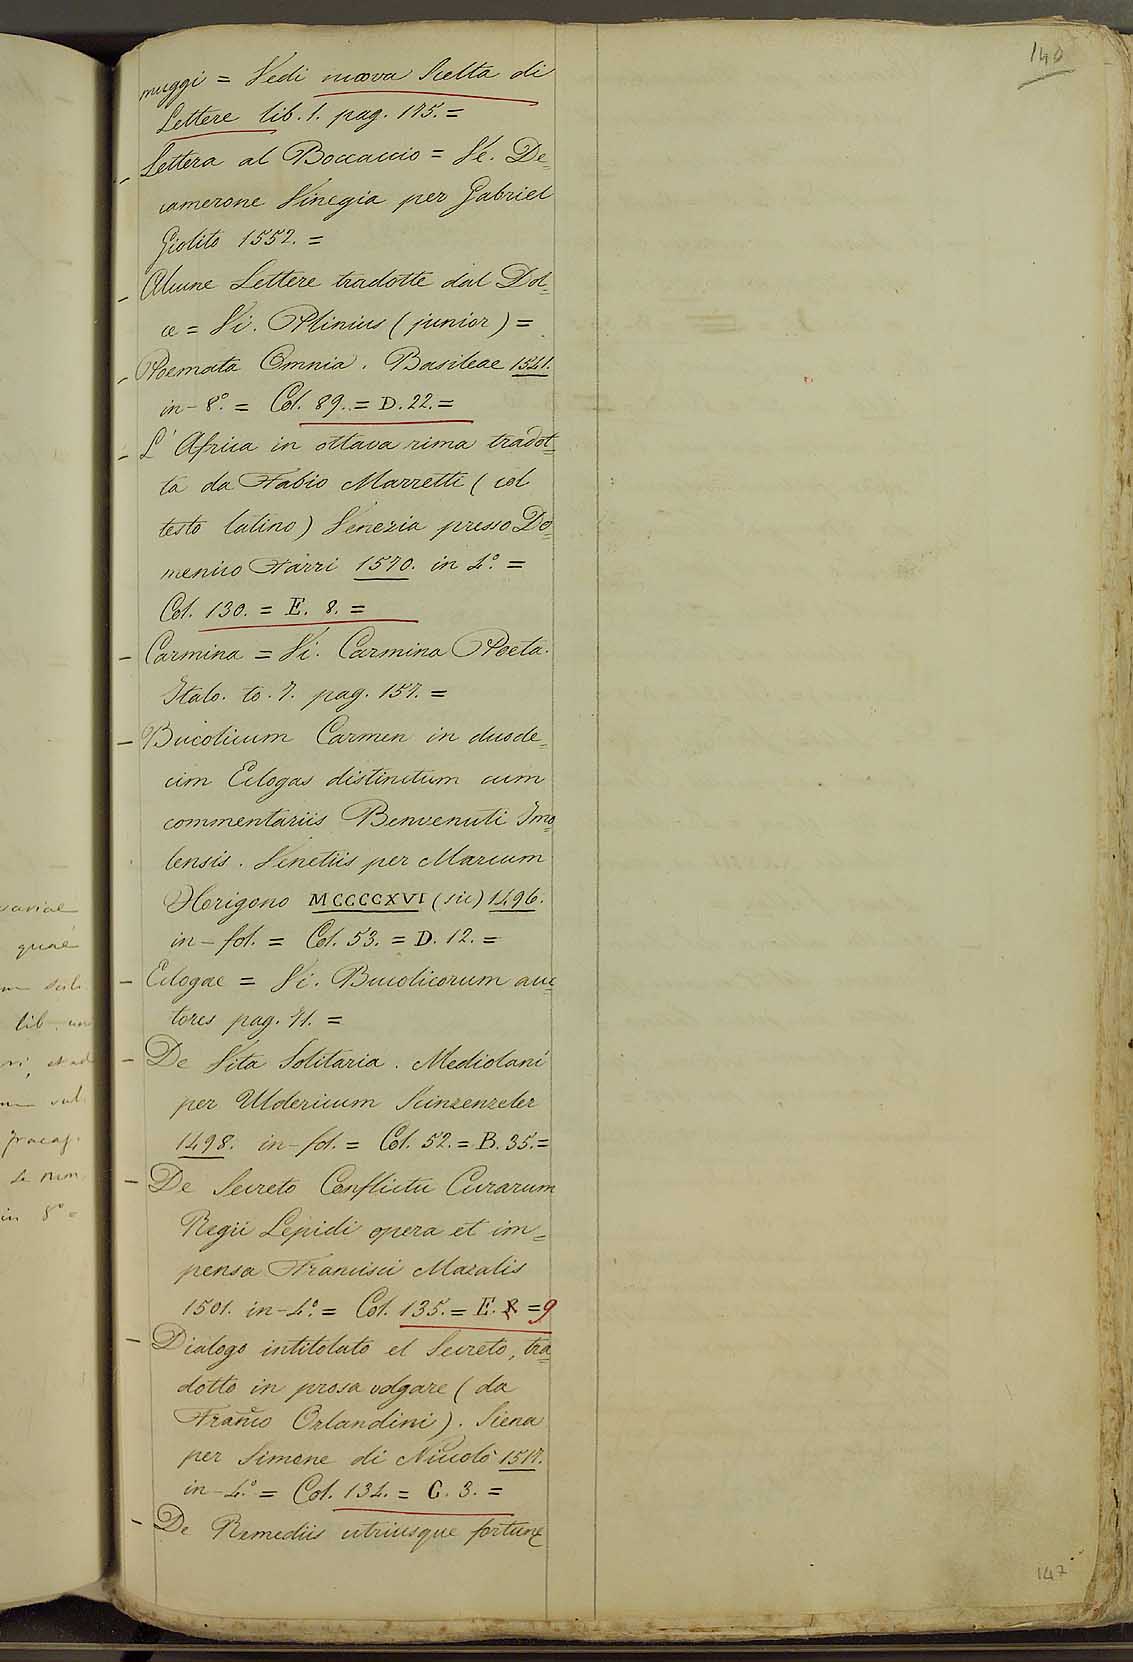 140
muggi = Vedi nuova Scelta di
Lettere lib. 1. pag. 175. =
- Lettera al Boccaccio = Ve. De=
camerone Vinegia per Gabriel
Giolito 1552. =
- Alcune Lettere tradotte dal Dol=
ce = Vi. Plinius (junior) =
- Poemata Omnia. Basileae 1541.
in-8.° = Col. 89. = D. 22. =
- L'Africa in ottava rima tradot=
ta da Fabio Marretti (col
testo latino) Venezia presso Do=
menico Farri 1570. in 4.° =
Col. 130. = E. 8. =
- Carmina = Vi. Carmina Poeta.
Italo. to. 7. pag. 157. =
- Bucolicum Carmen in duode=
cim Eclogas distinctum cum
commentariis Benvenuti Imo=
lensis. Venetiis per Marcum
Horigono MCCCCXVI (sic) 1496.
in-fol. = Col. 53. = D. 12. =
- Eclogae = Vi. Bucolicorum auc=
tores pag. 71. =
- De Vita Solitaria. Mediolani
per Uldericum Scinzenzeler
1498. in-fol. = Col. 52. = B. 35. =
- De Secreto Conflictu Curarum
Regii Lepidi opera et im=
pensa Francisci Mazalis
1501. in-4.° = Col. 135. = E. 8 = 9
- Dialogo intitolato el Secreto, tra=
dotto in prosa volgare (da
Franco Orlandini). Siena
per Simone di Niccolò 1517.
in-4.° = Col. 134. = C. 3. =
- De Remediis utriusque fortunę
147
quae
lib. un
in 8° =